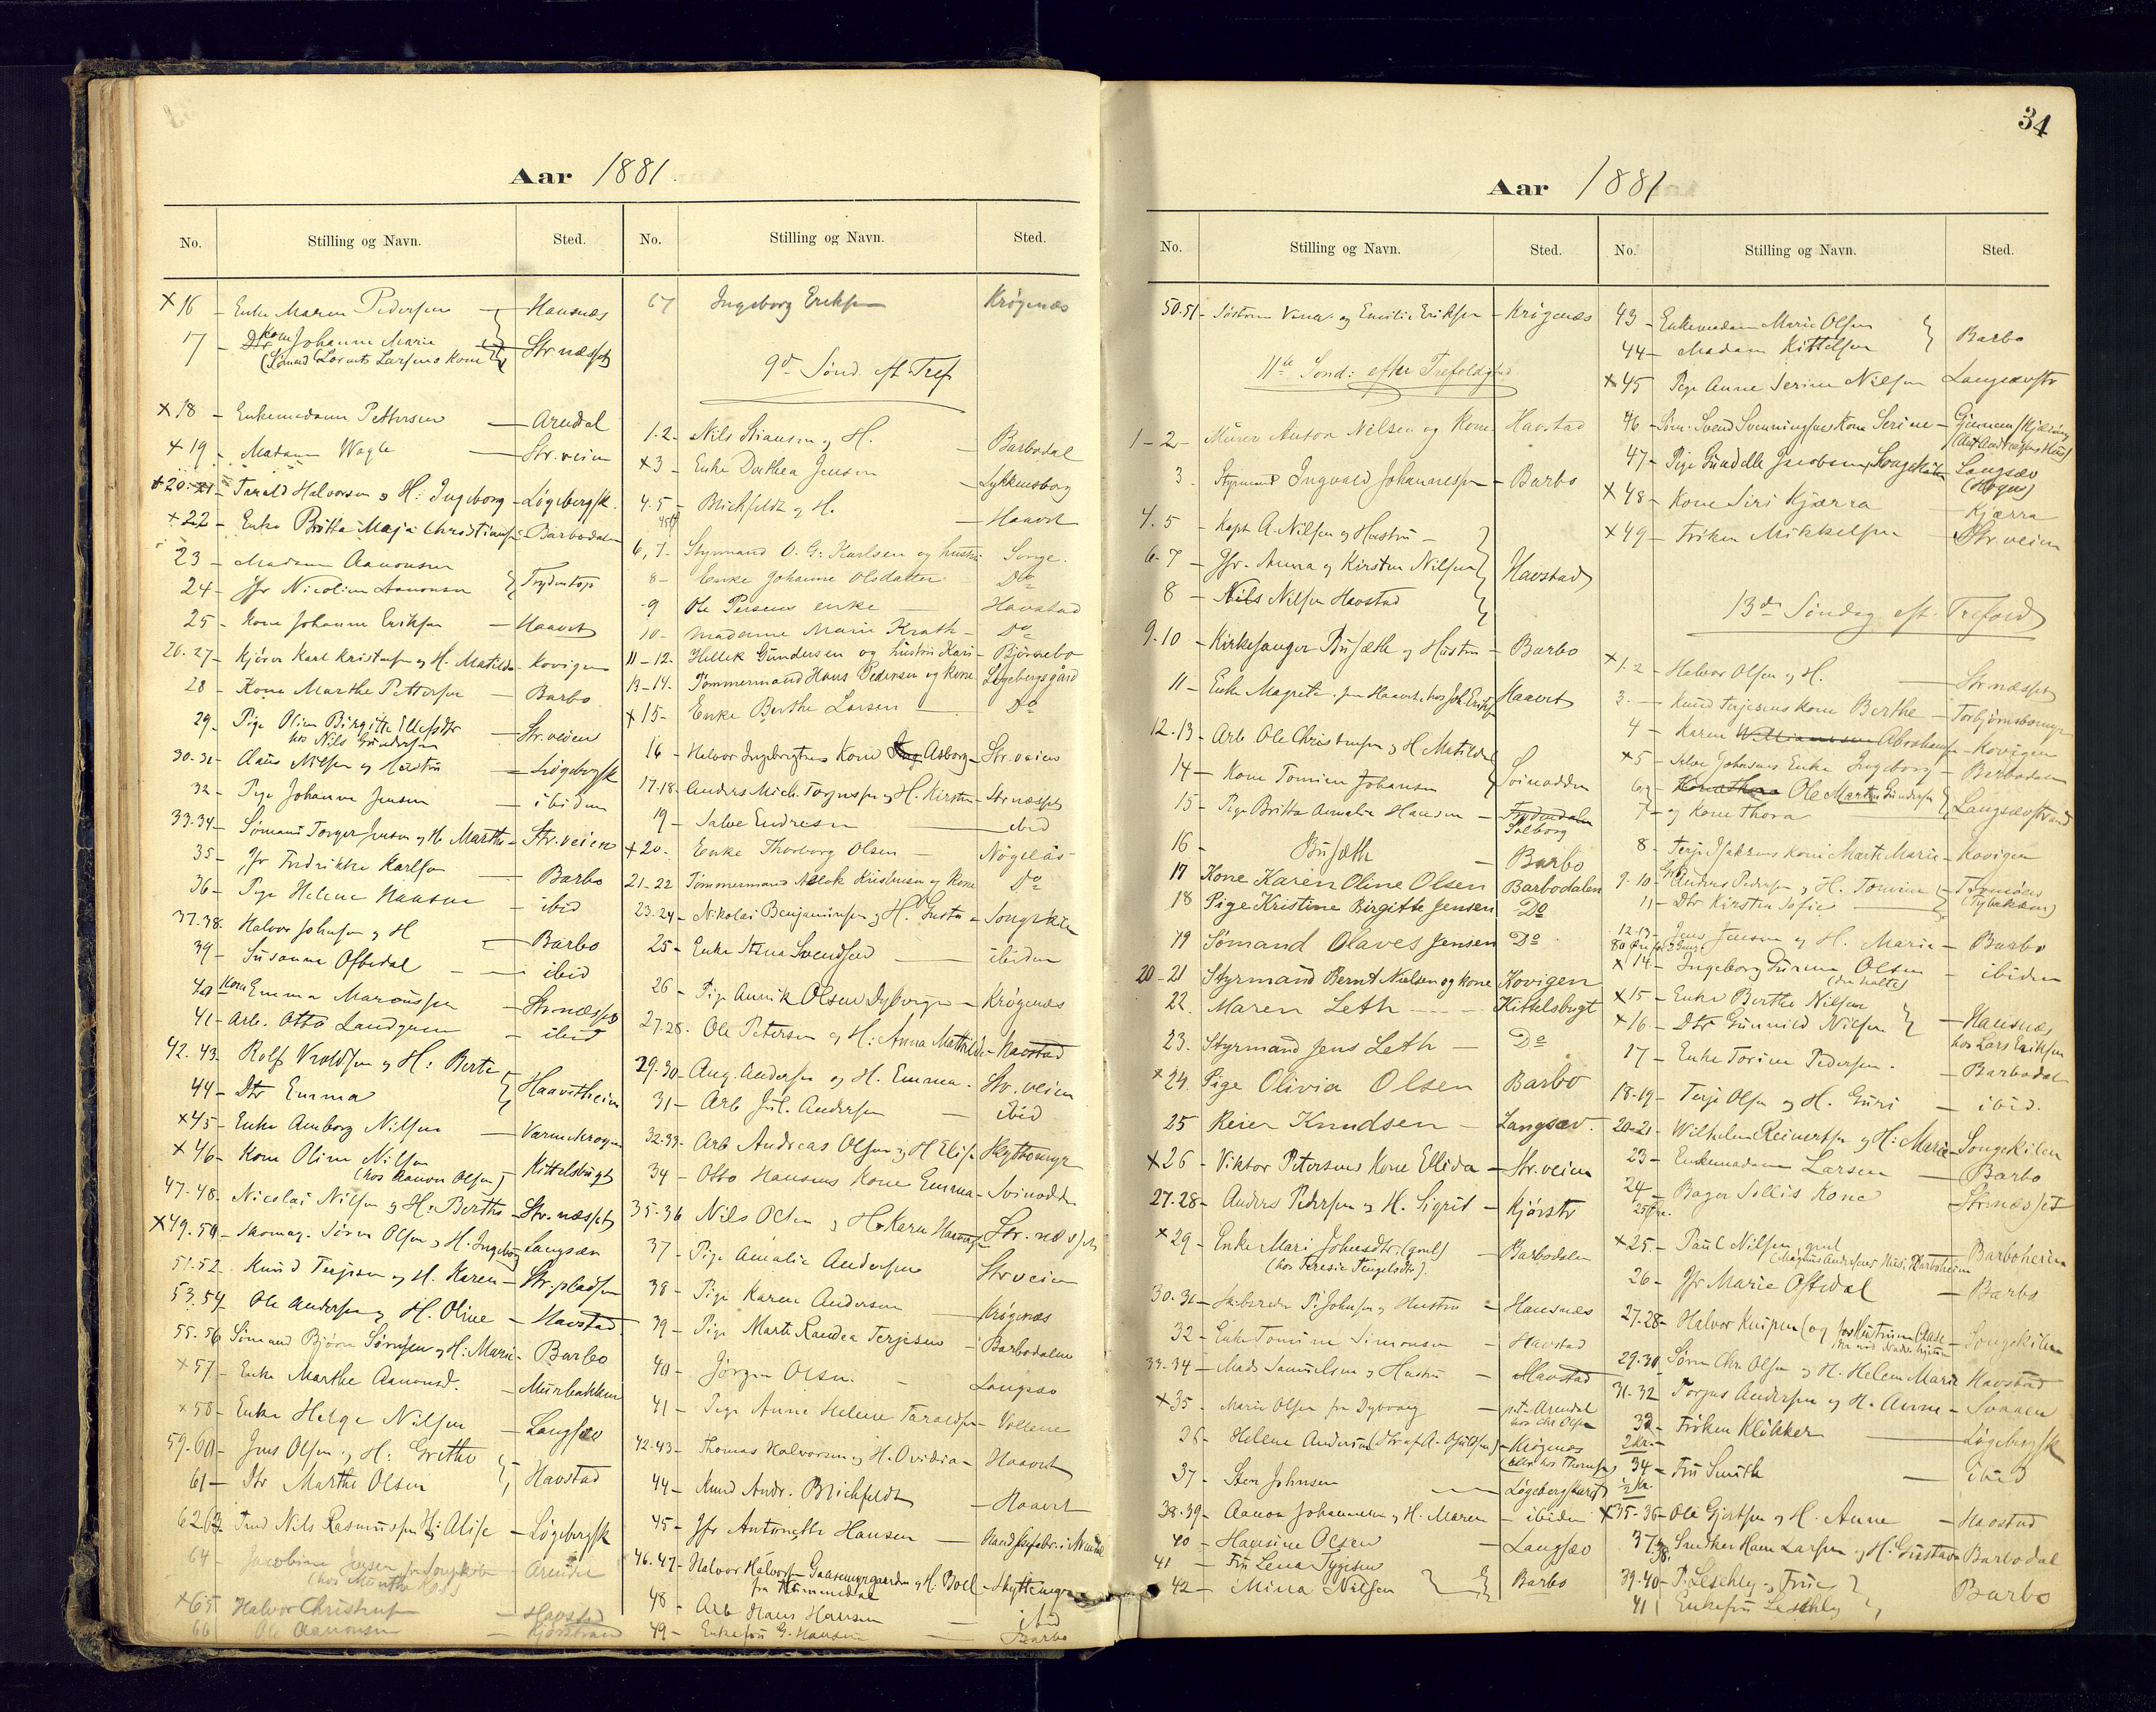 Aar 1881.
No. Stilling og Navn. Sted. No. Stilling og Navn. Sted.
× 16 - Enke Maren Pedersen - Hausnæs
17 - Kone Johanne Marie - Str.næsset
× 18 - Enkemadam Pettersen - Arendal
× 19 - Madam Wagle - Str.veien
× 20-21 - Tarald Halvorsen og H: Ingeborg - Løgebergsk.
× 22 - Enke Britta Maja Christians - Barbodalen
23 - Madam Aanonsen
24 - Jfr Nicoline Aanonsen
25 - Kone Johanne Eriksen - Haavet
26-27 - Kjører Karl Kristensen og H. Matilde - Kovigen
28 - Kone Marthe Pettersen - Barbo
29 - Pige Oline Birgitte Ellefsdtr - Str.veien
hos Nils Gundersen
30-31 - Claus Nilsen og Hustru - Løgebergsk
32 - Pige Johanne Jensen - ibidem
33-34 - Sømand Torger Jensen og H. Marthe - Str.veien
35 - Jfr Fredrikke Karlsen - Barbo
36 - Pige Helene Hansen - ibid
37-38 - Halvor Johnsen og H - Barbo
39 - Susanne Oftedal - ibid
40 Kone Emma Marcussen - Str.næsset
41 - Arb. Otto Landgren - ibid
42-43 - Rolf Vroldsen og H: Berte
44 - Dtr Emma - Haavetheien
× 45 - Enke Amborg Nilsen - Varmekrogen
× 46 - Kone Oline Nilsen - Kittelsbugt
(hos Aanon Olsen)
47-48 - Nicolai Nilsen og H: Berthe - Str.næsset
× 49-50 - Skomag. Søren Olsen og H. Ingeborg - Langsæv
51-52 - Knud Terjesen og H. Karen - Str.pladsen
53-54 - Ole Andersen og H. Oline - Havstad
55-56 Sømand Bjørn Sørensen og H: Marie - Barbo
× 57 - Enke Marthe Aanonsd. - Murbakken
× 58 - Enke Helge Nilsen - Langsæv
59-60 - Jens Olsen og H: Grethe
61 - Dtr Marthe Olsen - Havstad
62-63 Nils Rasmussen og H: Alise - Løgebergsk
64 - Jacobine Jensen - Arendal
× 65 Halvor Christensen - Havstad
66 Ole Aanonsen - Kjørstrand
67 Ingeborg Eriksen Krøgenæs
9de Sønd. eft Tref
1-2 - Nils Stiansen og H. - Barbodal
× 3 - Enke Dorthea Jensen - Lykkensborg
4-5 - Brichfeldt og H. - Haavet
6, 7 - Styrmand O. G: Karlsen og hustru Songe.
8 - Enke Johanne Olsdatter Do
9 Ole Persens enke - Havstad
10 - madame Marie Krath - Do
11-12 - Hellek Gundersen og hustru Kari - Bjönnebo
13-14 - Tømmermand Hans Pedersen og kone. Løgebergsgård
× 15 - Enke Berthe Larsen Do
16 - Halvor Ingebrigtsens Kone Asborg - Str.veien
17-18 - Anders Mich. Torjussen og H. Kirsten - Str.næsset
19 - Salve Endresen - ibid
× 20 - Enke Thorborg Olsen - Nögelås
21-22 Tømmermand Aslak Kristensen og Kone Do
23-24 - Nikolai Benjaminsen og H. Gusta - Songekilen
25 - Enke Asna Svendsen - ibidem
26 - Pige Annik Olsen Dybvigen - Krøgenæs
27-28 - Ole Petersen og H: Anna Mathilde - Havstad
29-30 - Aug. Andersen og H. Emma - Str.veien
31 - Arb Jul. Andersen - ibid
32-33 - Arb Andreas Olsen og H Elise Skyttemyr
34 - Otto Hansens Kone Emma - Svinodden
35-36 Nils Olsen og H. Karen - Str.næsset
37 - Pige Amalie Andersen Str.veien
38 - Pige Karen Andersen - Krøgenæs
39 - Pige Marte Randea Terjesen - Barbodalen
40 - Jørgen Olsen. - Langsæv
41 - Pige Anne Helene Taraldsen - Vollene
42-43 - Thomas Halvorsen og H. Ovidia - Haavet
44 - Knud Andr. Brichfeldt - Haavet
45 - Jfr Antonette Hansen -
46-47 - Halvor Halvorsen og H. Boel - Skyttemyr
48 - Arb Hans Hansen - ibid
49 - Enkefru G. Hansen - Barbo
34
Aar 1881
No. Stilling og Navn. Sted. No. Stilling og Navn. Sted.
50-51 - Søstrene Vena og Emilie Eriksen - Krøgenæs
11te Sønd: efter Trefoldighed
1-2 - Murer Anton Nilsen og Kone Havstad
3 Styrmand Ingvald Johannessen - Barbo
4-5 - Kapt A. Nilsen og Hustru -
6-7 - Jfr. Anna og Kirsten Nilsen Havstad
8 - Nils Nilsen Havstad
9-10 - Kirkesanger Busæth og Hustru - Barbo
11 - Enke Magrete - Haavet
12-13 - Arb. Ole Christensen og H Matilde
14 - Kone Tomine Johansen Svinodden
15 - Pige Britta Amalie Hansen - Solborg
16 - Busæth - Barbo
17 Kone Karen Oline Olsen Barbodalen
18 Pige Kristine Birgitte Jensen Do
19 Sömand Olaves Jensen Do
20-21 Styrmand Bernt Nielsen og kone Kovigen
22. Maren Leth - Kittelsbugt
23. Styrmand Jens Leth - Do
× 24. Pige Olivia Olsen Barbo
25 Reier Knudsen - Langsæv.
× 26 - Viktor Petersens Kone Ellida - Str.veien
27-28 - Anders Pedersen og H. Sigrid - Kjørstr
× 29 - Enke Mari Johnsdtr. (gml) - Barbodalen
(hos Teresie Tengelsdtr).
30-31 - P. Johnsen og Hustru - Hausnæs
32 - Enke Tomine Simonsen - Havstad
33-34 - Mads Samuelsen og Hustru - Havstad
× 35 - Marie Olsen fra Dybvaag - p.t. Arendal
hos Chr Olsen
36 - Helene Andersen - Krøgenes
37 - Sten Johnsen - Løgebergskaret
38-39 - Aanon Johannesen og H. Maren - ibidem
40 - Hansine Olsen - Langsæv
41 - Fru Lena Tygesen
42 - Mina Nilsen Barbo
43 - Enkemadam Marie Olsen
44 - Madam Kittelsen Barbo
× 45 Pige Anne Serine Nilsen Langsævstr
46 - Søm. Svend Svenningsens Kone Serine -
47 - Pige Gunelle Jacobsen Langsæv
× 48 - Kone Siri Kjærra - Kjærra
× 49 - Frøken Mikkelsen - Str.veien
13de Søndag eft. Trefold
× 1-2 - Halvor Olsen og H. - Str.næsset
3. - Knud Terjesens kone Berthe - Torbjørnsbomyr
4 - Karen Abrahamsen - Kovigen
× 5 - Salve Johnsens Enke Ingeborg - Barbodalen
6 - Ole Martin Gundersen Langsævstrand
7 - og Kone Thora
8 - Terje Isaksens Kone Marte Marie - Kovigen
9-10 - Anders Pedersen og H. Tomine - Tromøen
11 - Dtr Kirsten Sofie (Tybakken)
12-13 - Jens Jensen og H. Marie - Barbo
× 14 - Ingeborg Gurine Olsen - ibidem
(den halte)
× 15 - Enke Berthe Nilsen
× 16 - Dtr Gunnild Nilsen - Hausnæs
hos Lars Eriksen
17 - Enke Torine Pedersen. - Barbodal
18-19 - Terje Olsen og H. Guri - ibid.
20-21 - Wilhelm Reinertsen og H: Marie - Songekilen
23 - Enkemadam Larsen - Barbo
24 - Bager Sellis Kone Str.næsset
× 25 - Paul Nilsen, gml Barboheien
26 - Jfr Marie Oftedal - Barbo
27-28 - Halvor Knipen - Songekilen
29-30 Søren Chr. Olsen og H. Helene Marie Havstad
31-32 Torjus Andersen og H. Anne -
33 - Frøken Kløkker - Løgebergsk
2 Kr.
34 - Fru Smith - ibid
2 Kr.
× 35-36 - Ole Gjertsen og H. Anne - Havstad
37-38 Snedker Hans Larsen og H: Gustava Barbodal
39-40 - P. Leschly og Frue
41 Enkefru Leschly Barbo